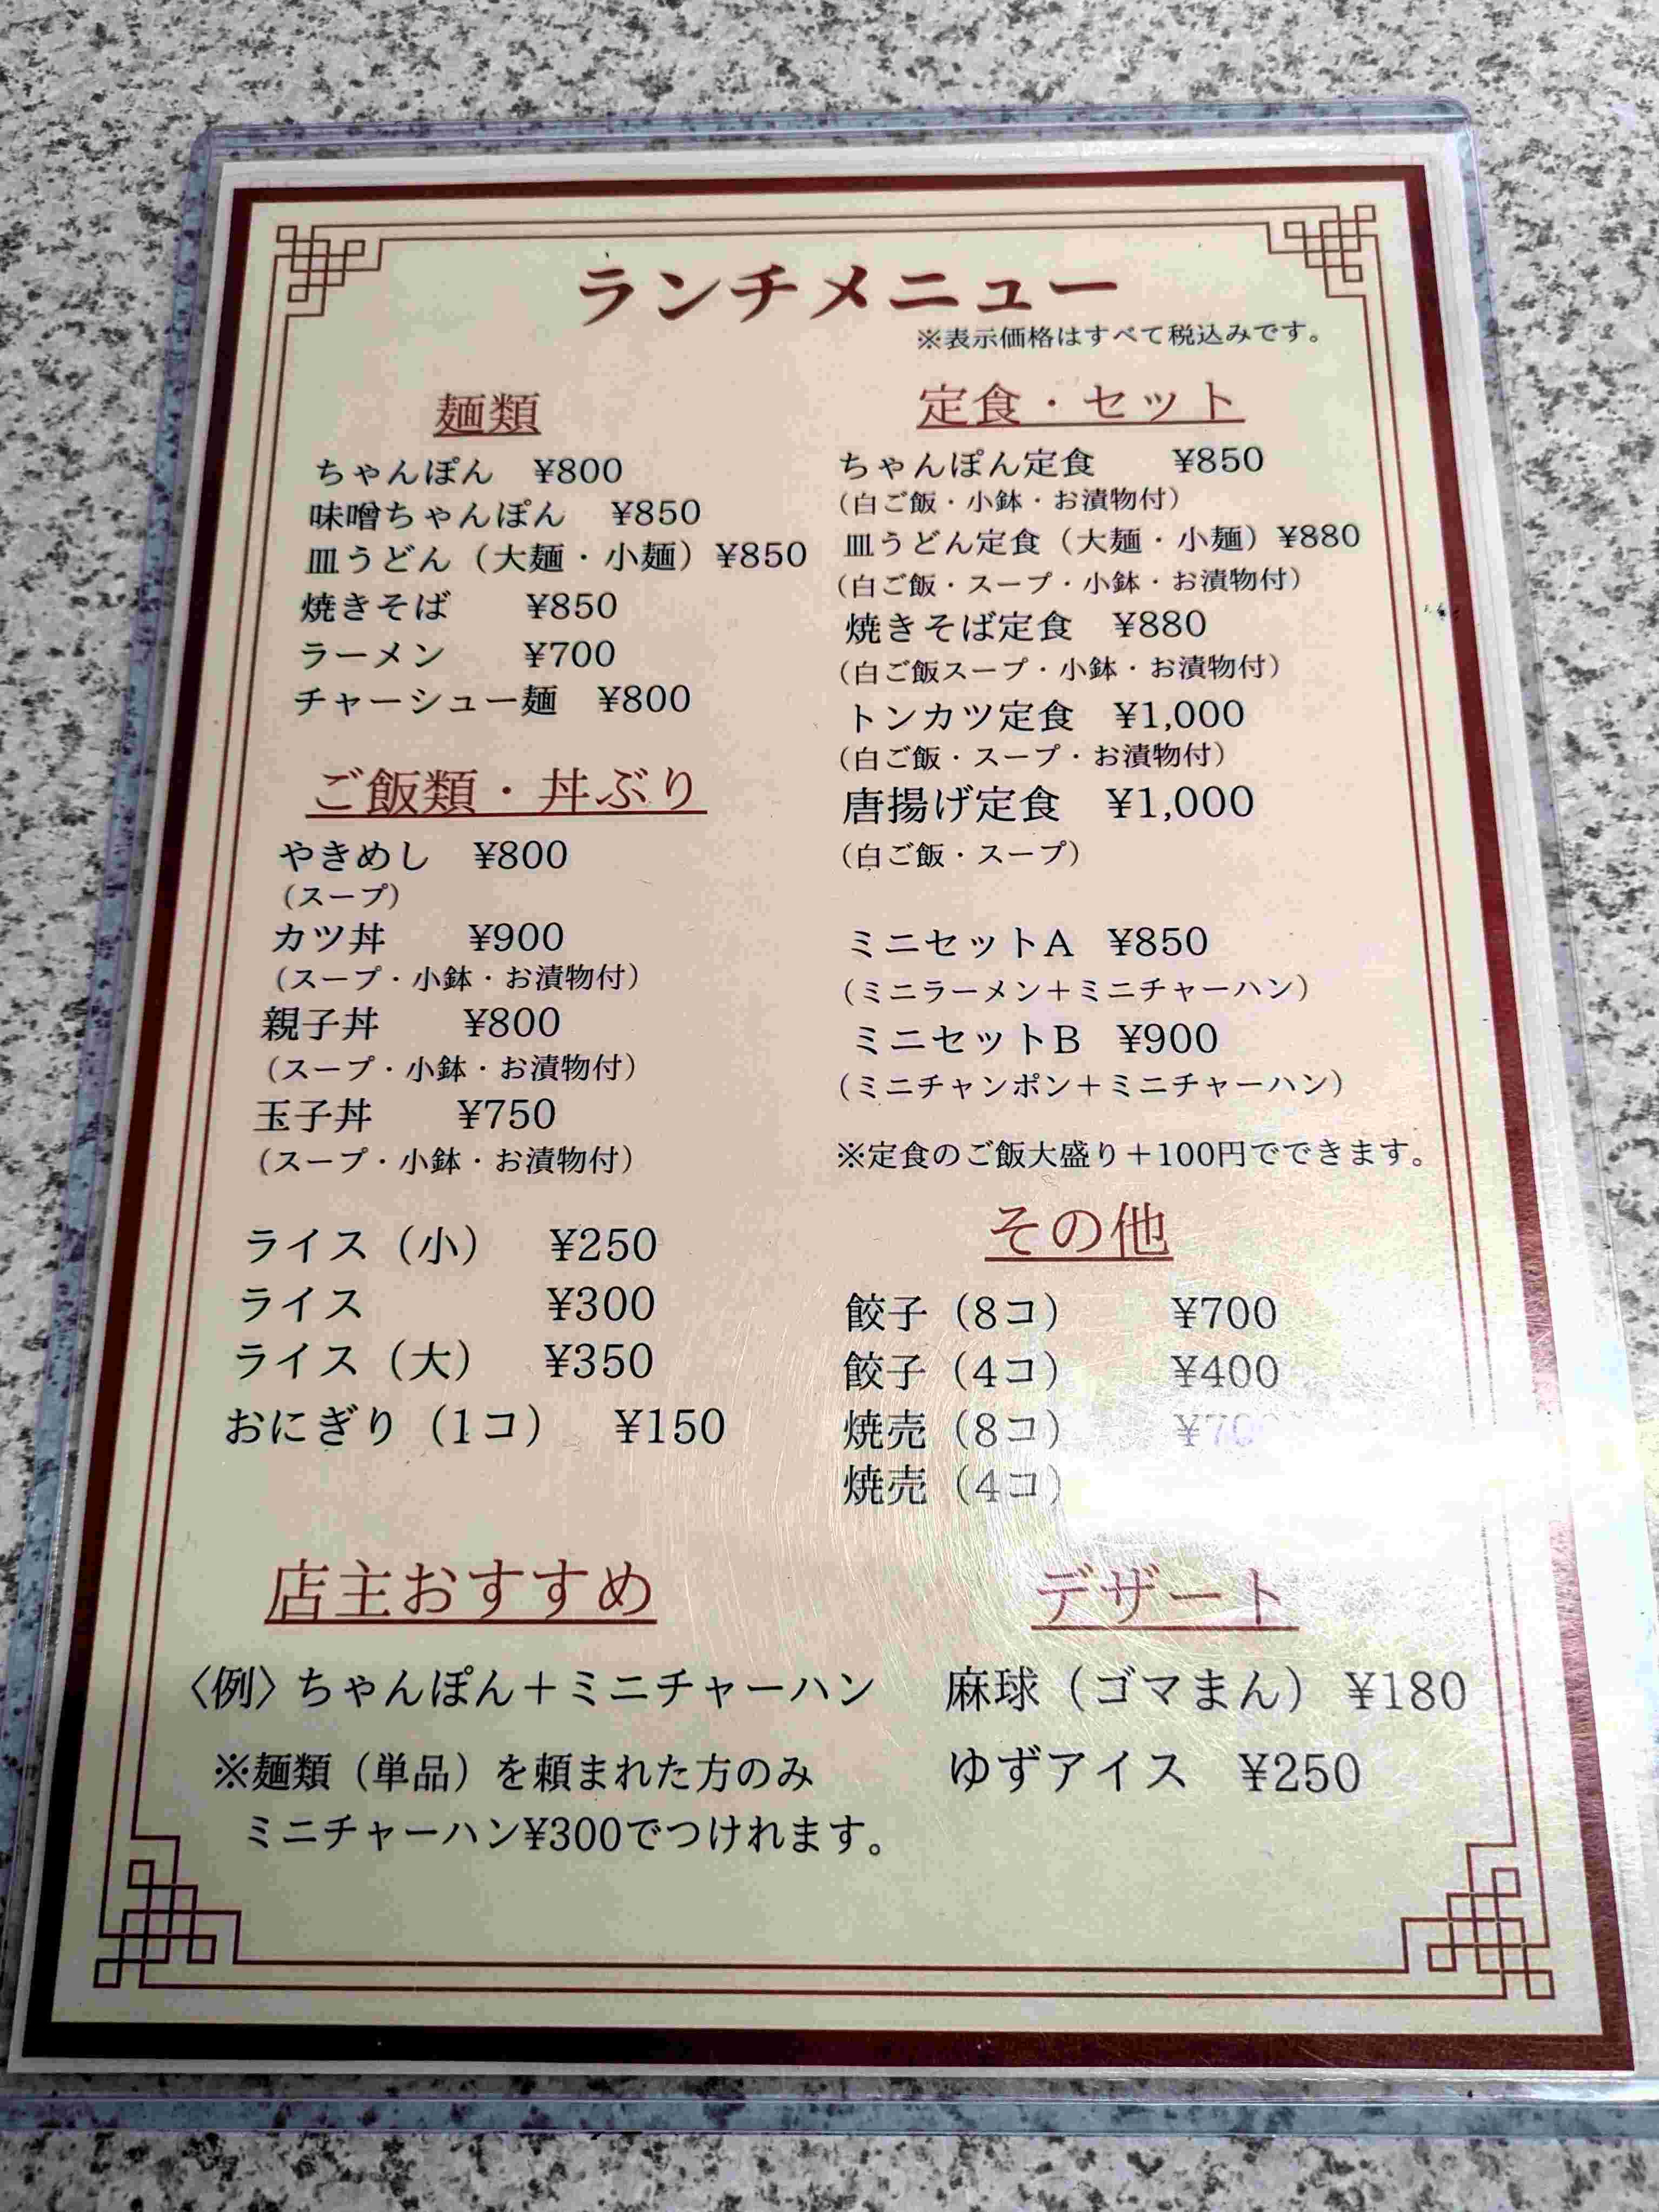 ランチメニュー
※表示価格はすべて税込みです。
麺類
ちゃんぽん ¥800
味噌ちゃんぽん ¥850
皿うどん（大麺・小麺）¥850
焼きそば ¥850
ラーメン ¥700
チャーシュー麺 ¥800
ご飯類・丼ぶり
やきめし ¥800
（スープ）
カツ丼 ¥900
（スープ・小鉢・お漬物付）
親子丼 ¥800
（スープ・小鉢・お漬物付）
玉子丼 ¥750
（スープ・小鉢・お漬物付）
ライス（小） ¥250
ライス ¥300
ライス（大） ¥350
おにぎり（1コ） ¥150
店主おすすめ
〈例〉ちゃんぽん＋ミニチャーハン
※麺類（単品）を頼まれた方のみ
ミニチャーハン¥300でつけれます。
定食・セット
ちゃんぽん定食 ¥850
（白ご飯・小鉢・お漬物付）
皿うどん定食（大麺・小麺）¥880
（白ご飯・スープ・小鉢・お漬物付）
焼きそば定食 ¥880
（白ご飯スープ・小鉢・お漬物付）
トンカツ定食 ¥1,000
（白ご飯・スープ・お漬物付）
唐揚げ定食 ¥1,000
（白ご飯・スープ）
ミニセットA ¥850
（ミニラーメン＋ミニチャーハン）
ミニセットB ¥900
（ミニチャンポン＋ミニチャーハン）
※定食のご飯大盛り＋100円でできます。
その他
餃子（8コ） ¥700
餃子（4コ） ¥400
焼売（8コ） ¥700
焼売（4コ）
デザート
麻球（ゴマまん） ¥180
ゆずアイス ¥250